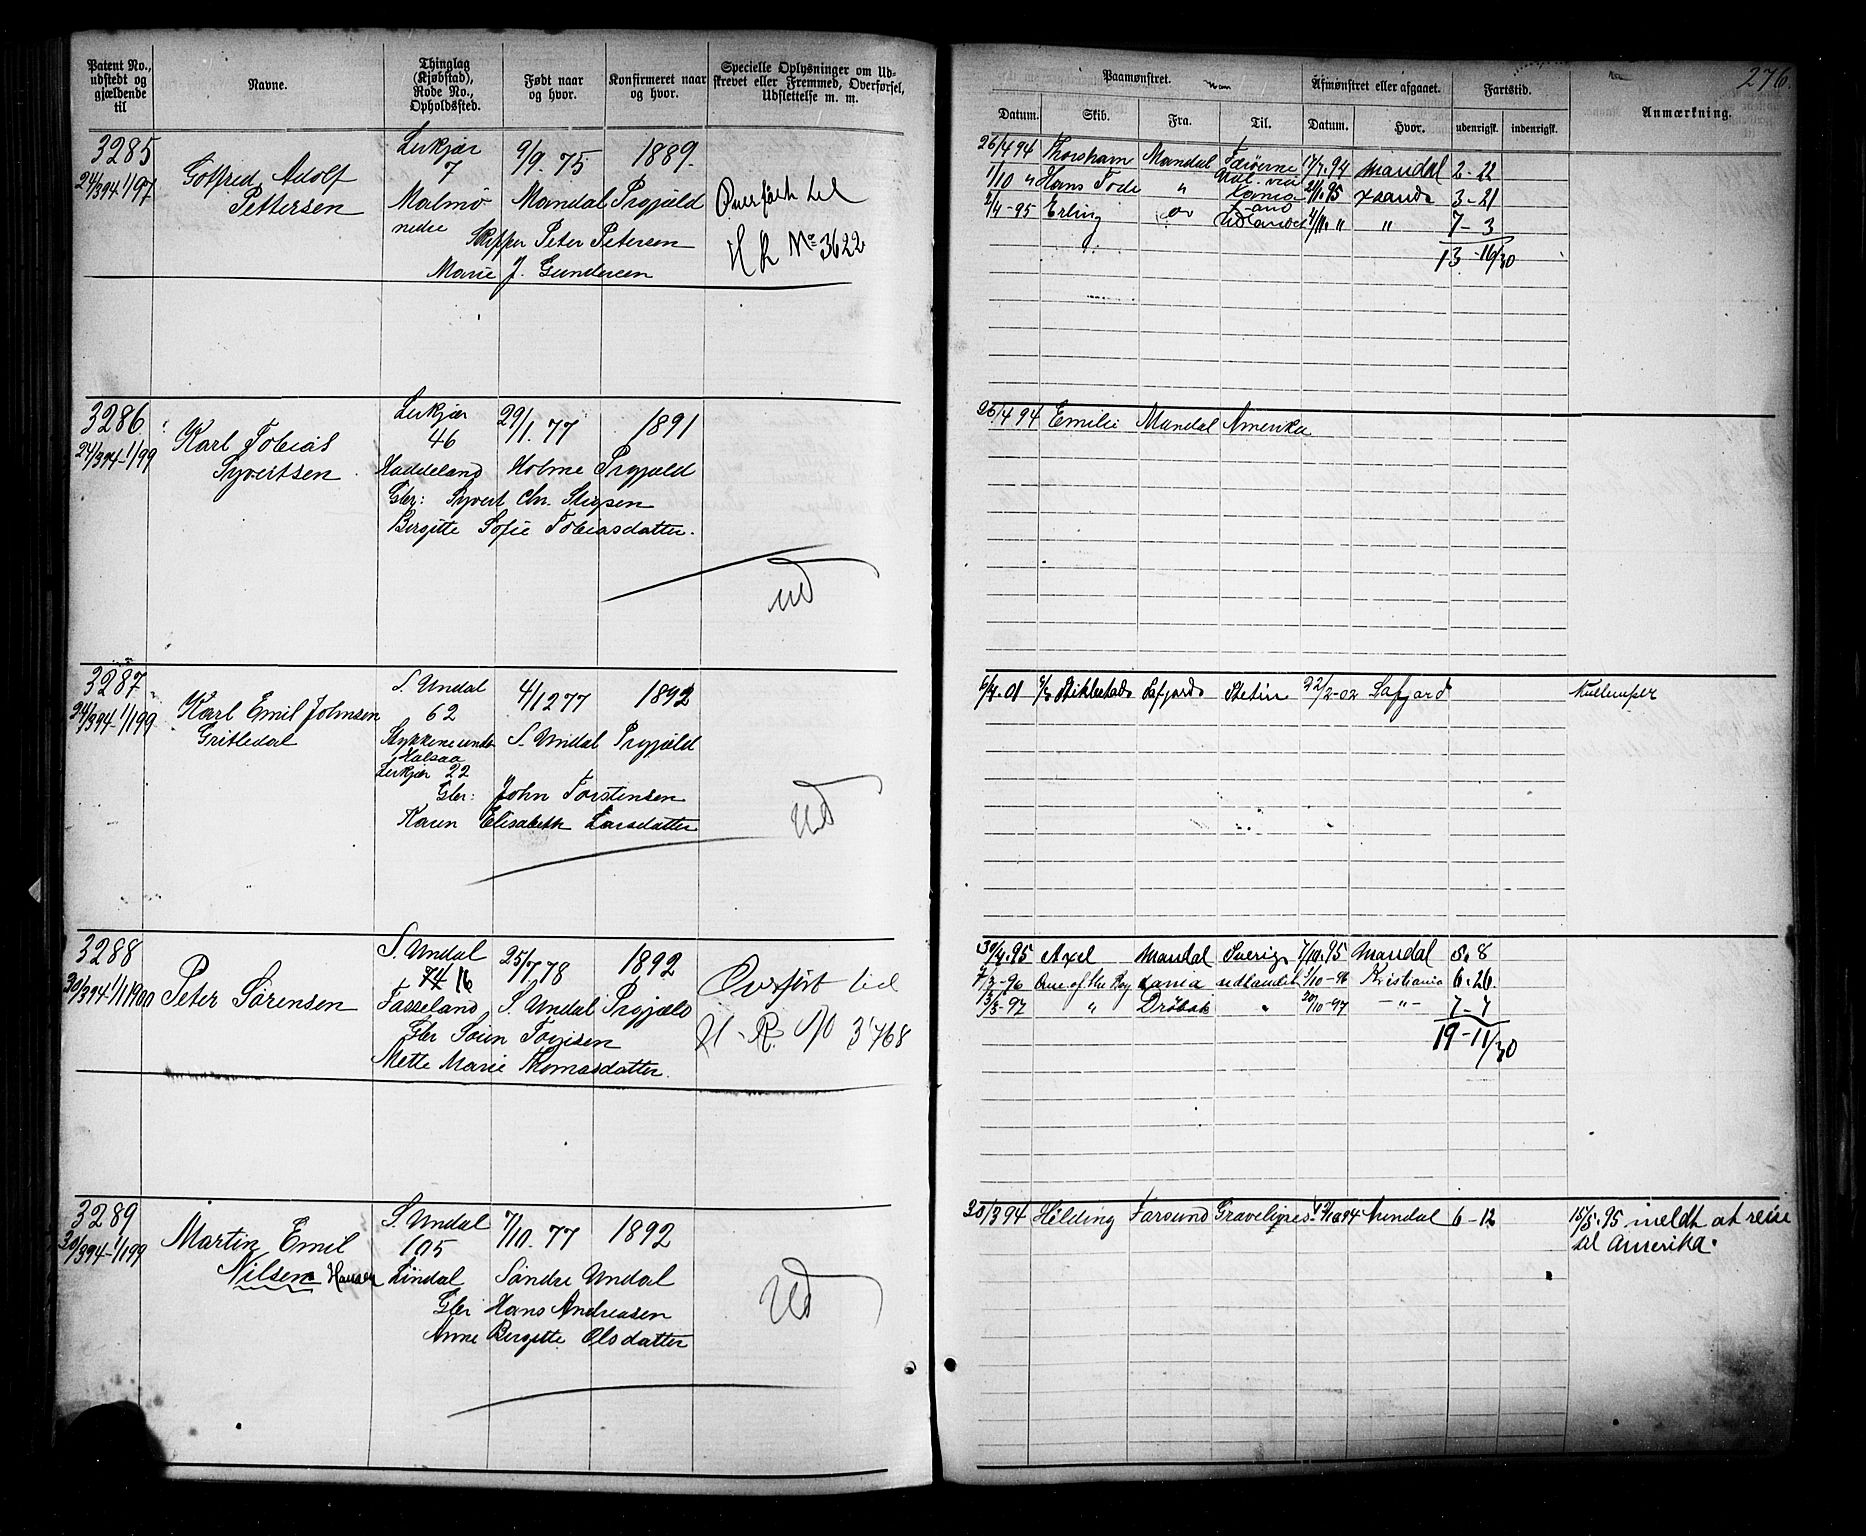 276.
Patent No., udstedt og gjældende til
Navne.
Thinglag (Kjøbstad), Rode No., Opholdssted.
Født naar og hvor.
Konfirmeret naar og hvor.
Specielle Oplysninger om Udskrevet eller Fremmed, Overførsel, Udslettelse m. m.
Paamønstret.
Afmønstret eller afgaaet.
Fartstid.
Anmærkning.
Datum. Skib. Fra. Til. Datum. Hvor. udenrigsk. indenrigsk.
3285
24/3 94 - 1/1 97
Gotfred Adolf
Pettersen
Lerkjær
7
Malmø
nedre
9/9. 75
Mandal
1889.
Prgjæld
Skipper Peter Petersen
Marie J. Gundersen
Overført til
H R No 3622
26/4 94 Thorshavn Mandal Færøerne 17/7. 94 Mandal 2 - 22
1/10 " Hans Tode " Udl. via Xania 2/1. 95 Xsand 3 - 21
2/4 - 95 Erling do Udlandet 4/11. " " 7 - 3
13 - 16/30
3286
24/3 94 - 1/1 99
Karl Tobias
Syvertsen
Lerkjær
46
Haddeland
29/1. 77
Holme
1891
Prgjæld
Gbr: Syvert Chr. Stigsen
Bergitte Sofie Tobiasdatter.
ud
26/4 94 Emilie Mandal Amerika
3287
24/3 94 - 1/1 99
Karl Emil Johnsen
Gritledal
S. Undal
62
Stykkene under
Halsaa
Lerkjær 22
4/12 77
S. Undal
1892
Prgjæld
Gbr: John Torstensen
Karen Elisabeth Larsdatter
ud
6/7. 01 Stiklestad Lafjord Stetin 22/2 - 02 Lafjord Kullemper
3288
30/3 94 - 1/1 1900
Peter Sørensen
S. Undal
74 16
Fasseland
25/7. 78
S. Undal
1892
Prgjæld
Gbr Sørn Torjisen
Mette Marie Thomasdatter.
Overført til
U - R. No 3768
30/4. 95 Axel Mandal Sverig 7/10. 95 Mandal 5. 8
7/3 - 96 One of the Roy Xania udlandet 1/10 - 96 Kristiania 6. 26
13/3 - 97 " Drøbak " 20/10 - 97 - " - 7 - 7
19 - 11/30
3289
30/3 94 - 1/1 99
Martin Emil
Nilsen Hansen
S. Undal
105
Lindal
7/10. 77
Søndre Undal
1892
Gbr Hans Andreasen
Anne Bergitte Olsdatter
Ud
30/3 94 Hilding Farsund Gravelignes 12/10 94 Arendal 6 - 12
15/5. 95 meldt at reise
til Amerika.